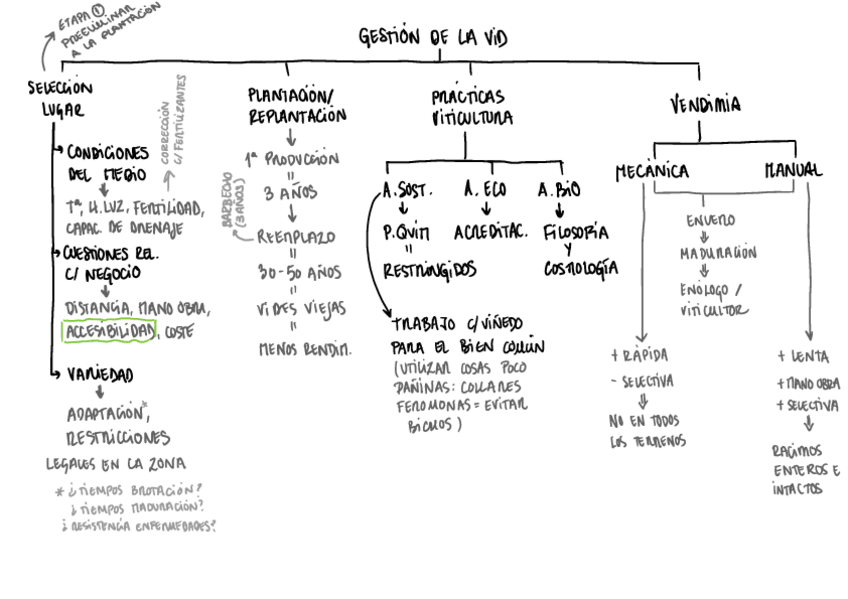 ETAPA ①
PREELIMINAR
A LA PLANTACIÓN
GESTIÓN DE LA VID
SELECCIÓN
LUGAR
CORRECCIÓN
C/ FERTILIZANTES
CONDICIONES
DEL MEDIO
Tª, H. LUZ, FERTILIDAD,
CAPAC. DE DRENAJE
CUESTIONES REL.
C/ NEGOCIO
DISTANCIA, MANO OBRA,
ACCESIBILIDAD, COSTE
VARIEDAD
ADAPTACIÓN*,
RESTRICCIONES
LEGALES EN LA ZONA
* ¿TIEMPOS BROTACIÓN?
¿TIEMPOS MADURACIÓN?
¿RESISTENCIA ENFERMEDADES?
PLANTACIÓN/
REPLANTACIÓN
1ª PRODUCCIÓN
=
3 AÑOS
BARBECHO
(3 AÑOS)
REEMPLAZO
=
30-50 AÑOS
=
VIDES VIEJAS
=
MENOS RENDIM.
PRÁCTICAS
VITICULTURA
A. SOST.
P. QUIM
=
RESTRINGIDOS
A. ECO
ACREDITAC.
A. BIO
FILOSOFÍA
Y
COSMOLOGÍA
TRABAJO C/ VIÑEDO
PARA EL BIEN COMÚN
(UTILIZAR COSAS POCO
DAÑINAS: COLLARES
FEROMONAS = EVITAR
BICHOS)
VENDIMIA
MECÁNICA
MANUAL
ENVERO
MADURACIÓN
ENÓLOGO /
VITICULTOR
+ RÁPIDA
- SELECTIVA
NO EN TODOS
LOS TERRENOS
+ LENTA
+ MANO OBRA
+ SELECTIVA
RACIMOS
ENTEROS E
INTACTOS